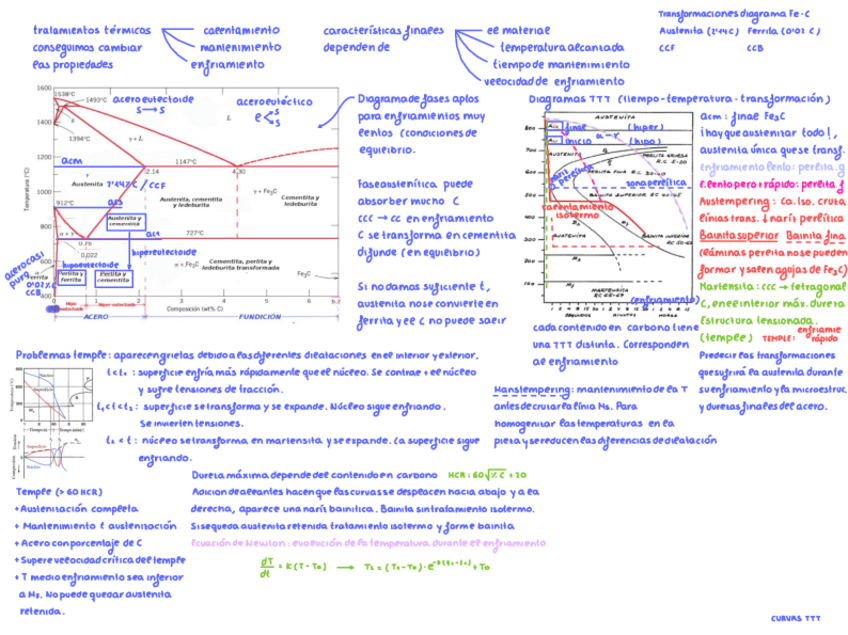 Transformaciones diagrama Fe-C
Austenita (2'14 C) Ferrita (0'02 C)
CCF CCB
tratamientos térmicos
conseguimos cambiar
las propiedades
calentamiento
mantenimiento
enfriamiento
características finales
dependen de
el material
temperatura alcanzada
tiempo de mantenimiento
velocidad de enfriamiento
1600
1400
1200
1000
800
600
400
Temperatura (°C)
1538°C
1493°C
1394°C
acero eutectoide
S → S
acero eutéctico
L
γ+L
acm
1147°C
2.14
4.30
γ
Austenita
Austenita, cementita
y ledeburita
γ + Fe3C
Cementita
912°C
ac3
Austenita y
cementita
ac1
727°C
0.76
0.022
hipereutectoide
hipoeutectoide
acero casi
puro
Ferrita
0'02 % C
CCB
Perlita y
ferrita
Perlita y
cementita
α + Fe3C
Cementita, perlita y
ledeburita transformada
Fe3C
Composición (wt% C)
ACERO
FUNDICIÓN
Diagrama de fases aptos
para enfriamientos muy
lentos (condiciones de
equilibrio.
Fase austenítica puede
absorber mucho C
CCC → CC en enfriamiento
C se transforma en cementita
difunde (en equilibrio)
Si no damos suficiente t,
austenita no se convierte en
ferrita y el C no puede salir
Diagramas TTT (tiempo-temperatura-transformación)
AUSTENITA
final
(hiper)
inicio
(hipo)
AUSTENITA
PERLITA GRUESA
PERLITA FINA
zona perlítica
calentamiento
isotermo
BAINITA INFERIOR
AUSTENITA
MARTENSITA
(enfriamiento)
SEGUNDOS
MINUTOS
HORAS
cada contenido en carbono tiene
una TTT distinta. Corresponden
al enfriamiento
acm: final Fe3C
¡hay que austenitar todo!,
austenita única que se transf.
Enfriamiento lento: perlita.g
E.lento pero + rápido: perlita f
Austempering: ca. iso. cruza
línias trans. ↓ nariz perlítica
Bainita superior Bainita fina
(láminas perlita no se pueden
formar y salen agujas de Fe3C)
Martensita: CCC → tetragonal
C, en el interior máx. dureza
Estructura tensionada.
(temple) TEMPLE: enfriamie
rápido
Predecir las transformaciones
que sufrirá la austenita durante
su enfriamiento y la microestruc.
y durezas finales del acero.
Problemas temple: aparecen grietas debido a las diferentes dilataciones en el interior y exterior.
t < t1 : superficie enfría más rápidamente que el núcleo. Se contrae + el núcleo
y sufre tensiones de tracción.
t1 < t < t2 : superficie se transforma y se expande. Núcleo sigue enfriando.
Se invierten tensiones.
t2 < t : núcleo se transforma en martensita y se expande. La superficie sigue
enfriando.
Manstempering: mantenimiento de la T
antes de cruzar la línia Ms. Para
homogenizar las temperaturas en la
pieza y se reducen las diferencias de dilatación
Temple (> 60 HCR)
+ Austenización completa
+ Mantenimiento t austenización
+ Acero con porcentaje de C
+ Supere velocidad crítica del temple
+ T medio enfriamiento sea inferior
a Mf. No puede quedar austenita
retenida.
Dureza máxima depende del contenido en carbono HCR: 60 √% C + 20
Adicion de aleantes hacen que las curvas se desplacen hacia abajo y a la
derecha, aparece una nariz bainítica. Bainita sin tralamiento isotermo.
Si se queda austenita retenida tratamiento isotermo y forme bainita
Ecuación de Newton: evolución de la temperatura durante el enfriamiento
dT/dt = K(T-T0) → T2 = (T1-T0)·e^-K(t2-t1) + T0
CURVAS TTT